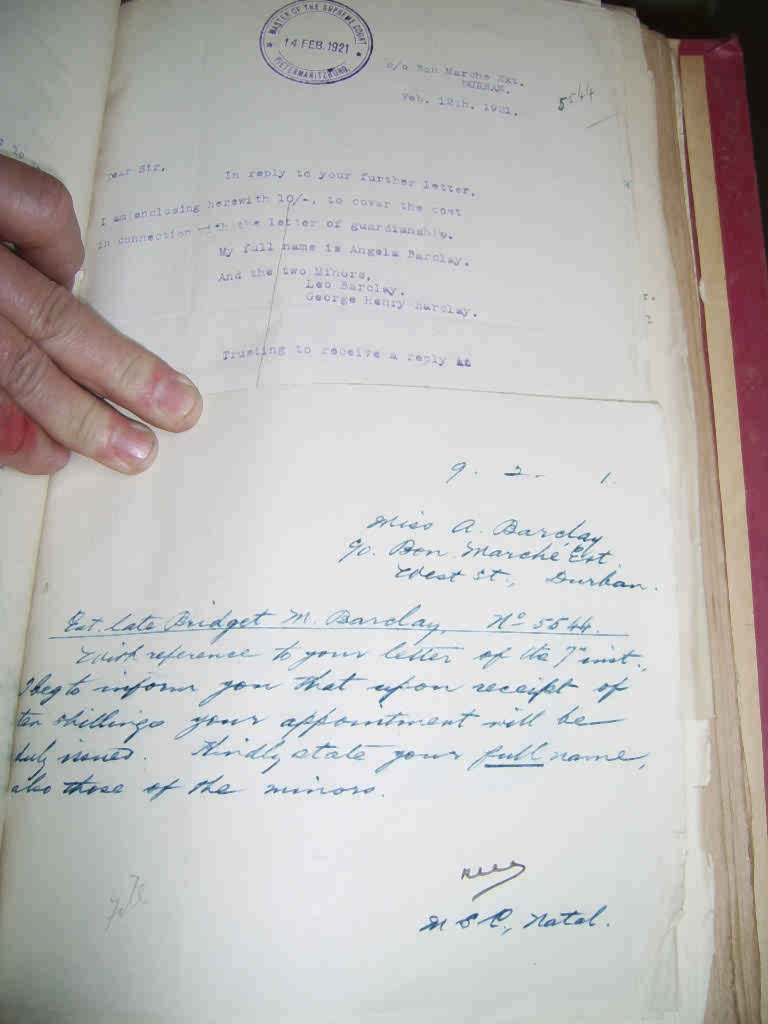 MASTER OF THE SUPREME COURT
14 FEB. 1921
PIETERMARITZBURG.
c/o Bon Marche Ext.
DURBAN.
Feb. 12th. 1921.
5544
Dear Sir,
In reply to your further letter,
I am enclosing herewith 10/-, to cover the cost
in connection with the letter of guardianship.
My full name is Angela Barclay.
And the two Minors,
Leo Barclay.
George Henry Barclay.
Trusting to receive a reply at
9. 2. 1.
Miss A. Barclay
c/o. Bon Marché Ext.
West St., Durban.
Est. late Bridget M. Barclay, No 5544.
With reference to your letter of the 7th inst.,
I beg to inform you that upon receipt of
ten shillings your appointment will be
duly issued. Kindly state your full name,
also those of the minors.
M S C, Natal.